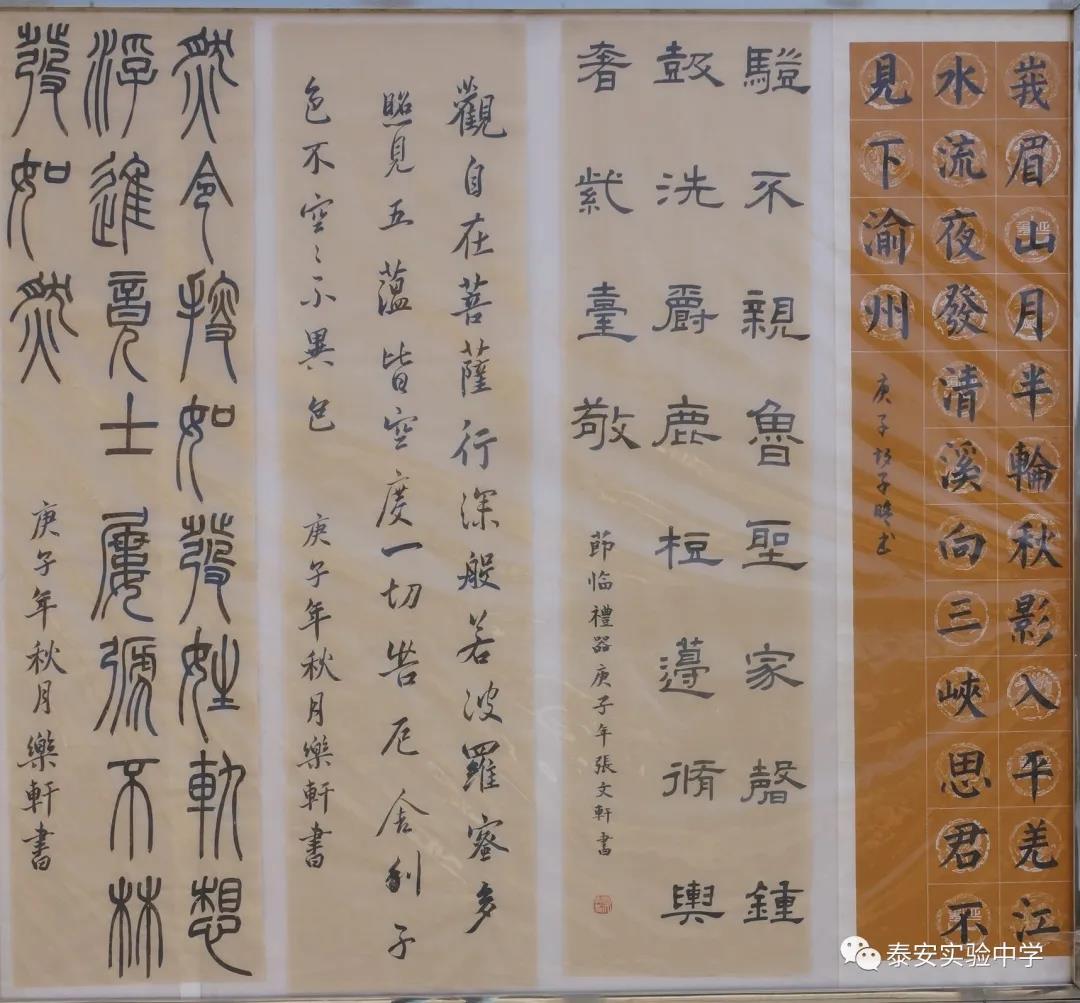 峩眉山月半輪秋影入平羌江
水流夜發清溪向三峽思君不
見下渝州
庚子 子 书
不親魯聖家磬鍾
鼓洗爵鹿梪籩脩輿
奢紫臺敬
節临禮器庚子年張文軒書
觀自在菩薩行深般若波羅蜜多
照見五蘊皆空度一切苦厄舍利子
色不空〻不異色
庚子年秋月樂軒書
然令如發妙軌想
浮進竟士屢不林
發如然
庚子年秋月樂軒書
泰安实验中学